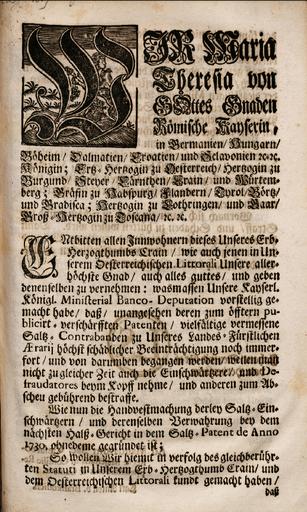 WIR Maria
Theresia von
GOttes Gnaden
Römische Kayserin,
in Germanien/ Hungarn/
Böheim/ Dalmatien/ Croatien/ und Sclavonien ꝛc. ꝛc.
Königin; Ertz-Hertzogin zu Oesterreich/ Hertzogin zu
Burgund/ Steyer/ Cärnthen/ Crain/ und Würtem-
berg; Gräfin zu Habspurg/ Flandern/ Tyrol/ Görtz/
und Gradisca; Hertzogin zu Lothringen/ und Baar/
Groß-Hertzogin zu Toscana/ ꝛc. ꝛc.
ENtbitten allen Innwohnern dieses Unseres Erb-
Hertzogthumbs Crain/ wie auch jenen in Un-
serem Oesterreichischen Littorali Unsere aller-
höchste Gnad/ auch alles guttes/ und geben
denenselben zu vernehmen: wasmassen Unsere Kayserl.
Königl. Ministerial Banco-Deputation vorstellig ge-
macht habe/ daß/ unangesehen deren zum öfftern pu-
blicirt-verschärfften Patenten/ vielfältige vermessene
Saltz-Contrabanden zu Unseres Landes-Fürstlichen
Ærarij höchst schädlicher Beeinträchtigung noch immer-
fort/ und von darumben begangen werden/ weilen man
nicht zu gleicher Zeit auch die Einschwärtzere/ und De-
fraudatores beym Kopff nehme/ und anderen zum Ab-
scheu gebührend bestraffe.
Wie nun die Handvestmachung derley Saltz-Ein-
schwärtzern/ und derenselben Verwahrung bey dem
nächsten Halß-Gericht in dem Saltz-Patent de Anno
1730. ohnedeme gegründet ist;
So wollen Wir hiemit in verfolg des gleichberühr-
ten Statuti in Unserem Erb-Hertzogthumb Crain/ und
dem Oesterreichischen Littorali kundt gemacht haben/
daß